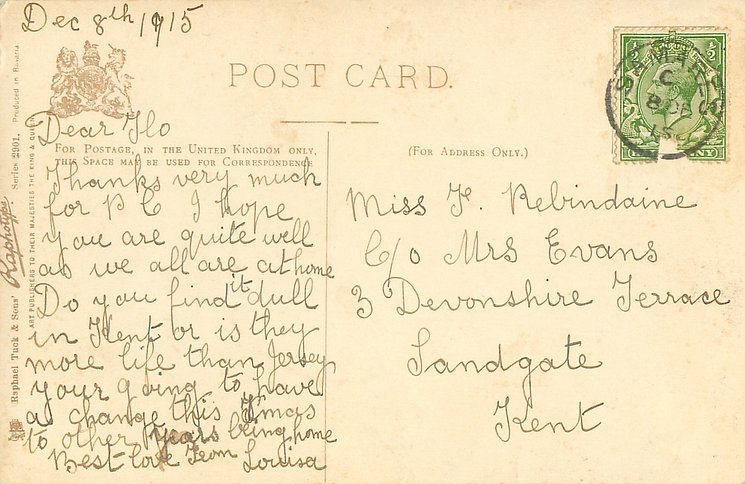 Dec 8th 1915
POST CARD.
Dear Flo
FOR POSTAGE, IN THE UNITED KINGDOM ONLY,
THIS SPACE MAY BE USED FOR CORRESPONDENCE
(FOR ADDRESS ONLY.)
Thanks very much
for P C I hope
you are quite well
as we all are at home
Do you find it dull
in Kent or is they
more life than Jersey
your going to have
a change this Xmas
to other years being home
Best love from Louisa
Miss F. Rebindaine
C/o Mrs Evans
3 Devonshire Terrace
Sandgate
Kent
Raphael Tuck & Sons' Raphotype Series 2901. Produced in Bavaria
ART PUBLISHERS TO THEIR MAJESTIES THE KING & QUEEN
ST. MARY'S
C
8 DE
15